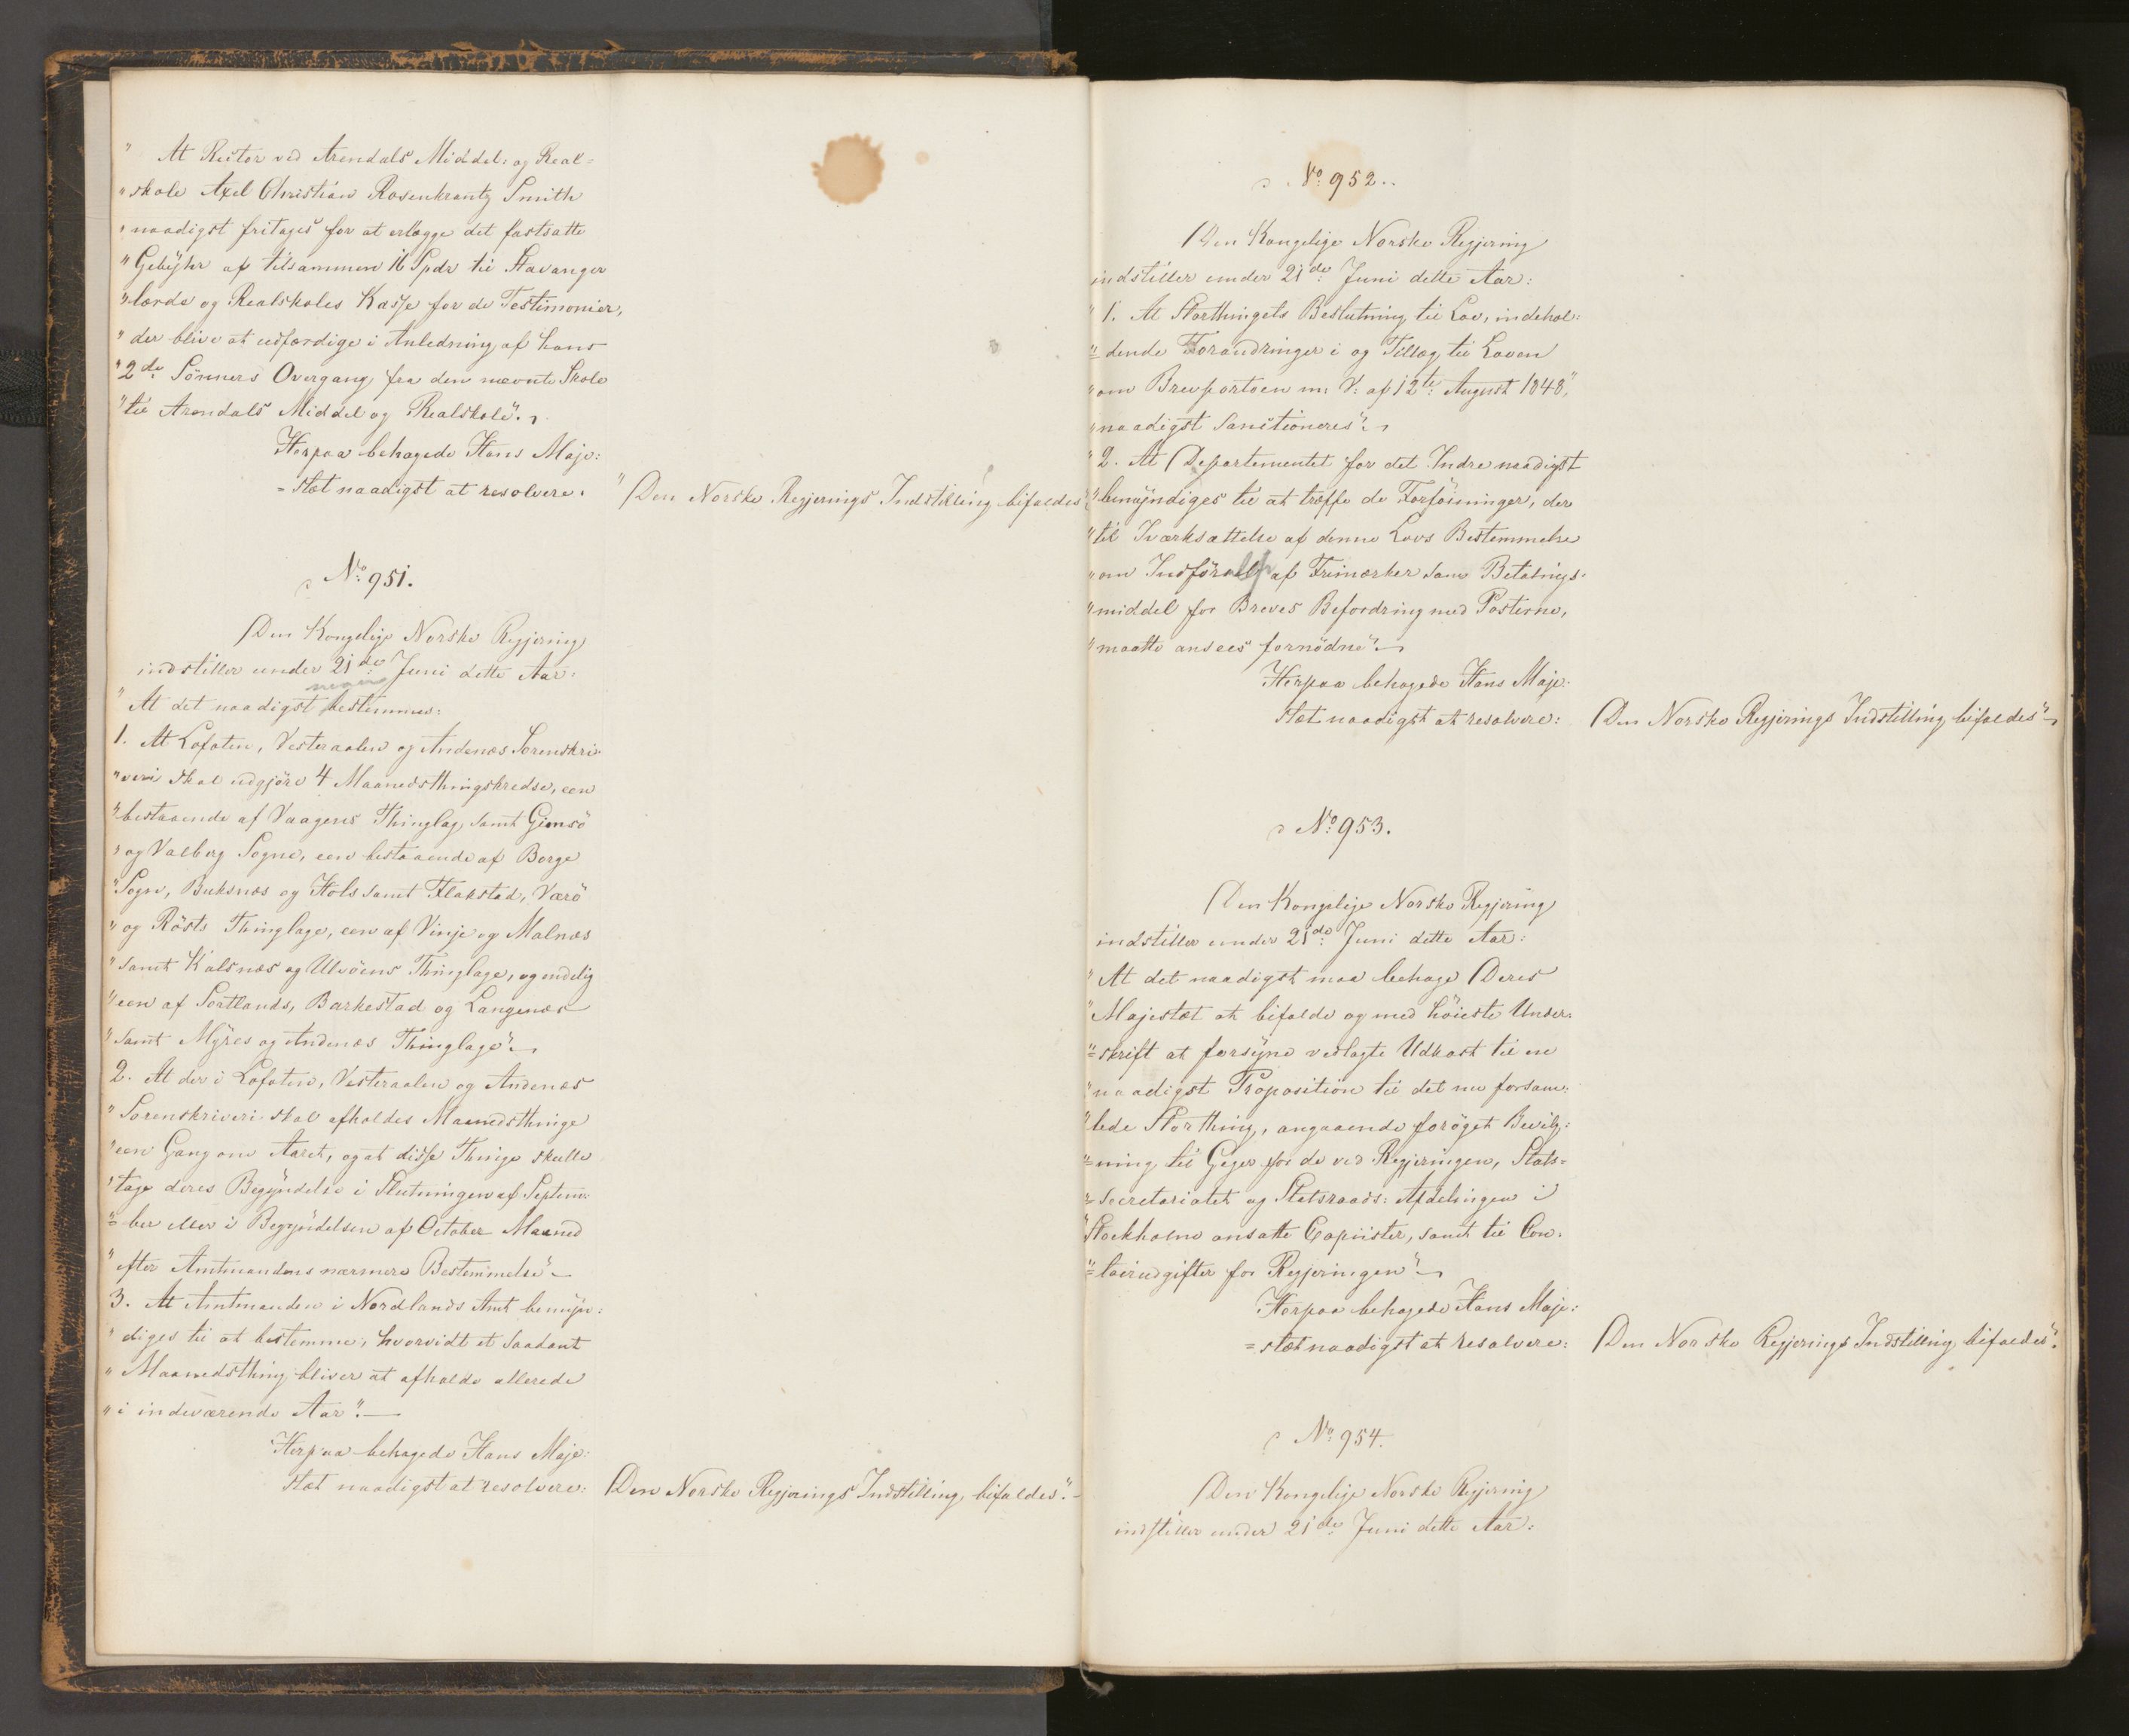 " At Rector ved Arendals Middel: og Real=
" skole Axel Christian Rosenkrantz Smith
" naadigst fritages for at erlægge det fastsatte
" Gebÿhr af tilsammen 16 Spdr til Stavanger
" lærde og Realskoles Kasse for de Testimonier,
" der blive at udfærdige i Anledning af hans
" 2de Sönners Overgang fra den nævnte Skole
" til Arendals Middel og Realskole".
Herpaa behagede Hans Maje:
= stæt naadigst at resolvere: "Den Norske Regjerings Indstilling bifaldes".
No 951.
Den Kongelige Norske Regjering
indstiller under 21de Juni dette Aar:
" At det naadigst bestemmes:
1. At Lofoten, Vesteraalen og Andenæs Sorenskri-
" veri skal udgjöre 4 Maanedsthingskredse, een
" bestaaende af Vaagens Thinglag samt Gimsö
" og Valberg Sogne, een bestaaende af Borge
" Sogn, Buksnæs og Hols samt Flakstad, Værö
" og Rösts Thinglage, een af Vinje og Malnæs
" samt Kalsnæs og Ulvöens Thinglage, og endelig
" een af Sortlands, Barkestad og Langenæs
" samt Mÿres og Andenæs Thinglage".
2. At der i Lofoten, Vesteraalen og Andenæs
" Sorenskriveri skal afholdes Maanedsthinge
" een Gang om Aaret, og at disse Thinge skulle
" tage deres Begÿndelse i Slutningen af Septem
"= ber eller i Begÿndelsen af October Maaned
" efter Amtmandens nærmere Bestemmelse".
3. At Amtmanden i Nordlands Amt bemÿn:
" diges til at bestemme, hvorvidt et saadant
" Maanedsthing bliver at afholde allerede
" i indeværende Aar".
Herpaa behagede Hans Maje:
stæt naadigst at resolvere: Den Norske Regjerings Indstilling bifaldes".
No 952.
Den Kongelige Norske Regjering
indstiller under 21de Juni dette Aar:
" 1. At Storthingets Beslutning til Lov, indehol:
"= dende Forandringer i og Tillæg til Loven
" om Brevportoen m: V: af 12te August 1848,"
" naadigst sanctioneres".
" 2. At Departementet for det Indre naadigst
" bemÿndiges til at træffe de Forföininger, der
" til Iværksættelse af denne Lovs Bestemmelse
" om Indförelse af Frimærker som Betalings-
" middel for Breves Befordring med Posterne,
" maatte ansees fornödne".
Herpaa behagede Hans Maje:
stæt naadigst at resolvere: Den Norske Regjerings Indstilling bifaldes".
No 953.
Den Kongelige Norske Regjering
indstiller under 21de Juni dette Aar:
" At det naadigst maa behage Deres
" Majestæt at bifalde og med höieste Under:
"= skrift at forsÿne vedlagte Udkast til en
" naadigst Proposition til det nu forsam:
" lede Storthing, angaaende foröget Bevilg:
"= ning til Gager for de ved Regjeringen, Stats=
"= Secretariatet og Statsraads: Afdelingen i
" Stockholm ansatte Copiister, samt til Con:
"= toirudgifter for Regjeringen".
Herpaa behagede Hans Maje:
= stæt naadigst at resolvere: Den Norske Regjerings Indstilling bifaldes".
No 954.
Den Kongelige Norske Regjering
indstiller under 21de Juni dette Aar: